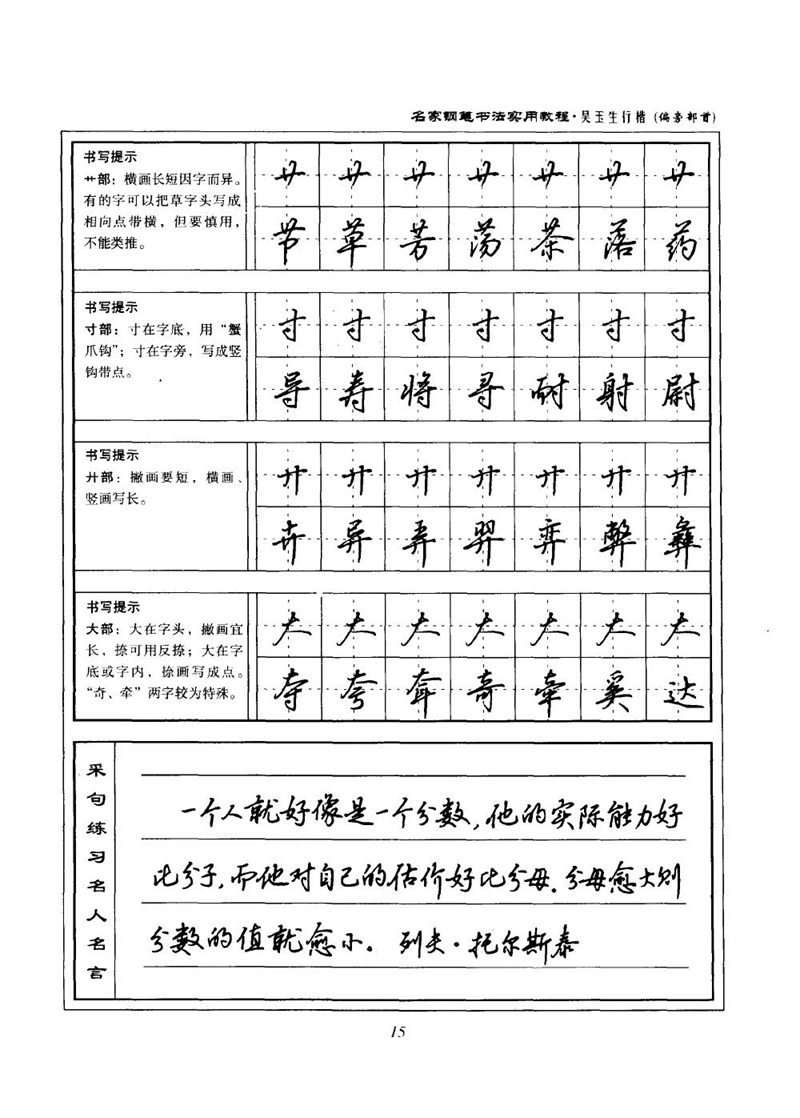 名家钢笔书法实用教程·吴玉生行楷(偏旁部首)
书写提示
艹部：横画长短因字而异。
有的字可以把草字头写成
相向点带横，但要慎用，
不能类推。
艹艹艹艹艹艹艹
节草芳荡茶落药
书写提示
寸部：寸在字底，用“蟹
爪钩”；寸在字旁，写成竖
钩带点。
寸寸寸寸寸寸寸
导寿将寻耐射尉
书写提示
廾部：撇画要短，横画、
竖画写长。
廾廾廾廾廾廾廾
卉异弄羿弈弊彝
书写提示
大部：大在字头，撇画宜
长，捺可用反捺；大在字
底或字内，捺画写成点。
“奇、牵”两字较为特殊。
大大大大大大大
夺夸耷奇牵奚达
采句练习名人名言
一个人就好像是一个分数，他的实际能力好
比分子，而他对自己的估价好比分母。分母愈大则
分数的值就愈小。 列夫·托尔斯泰
15